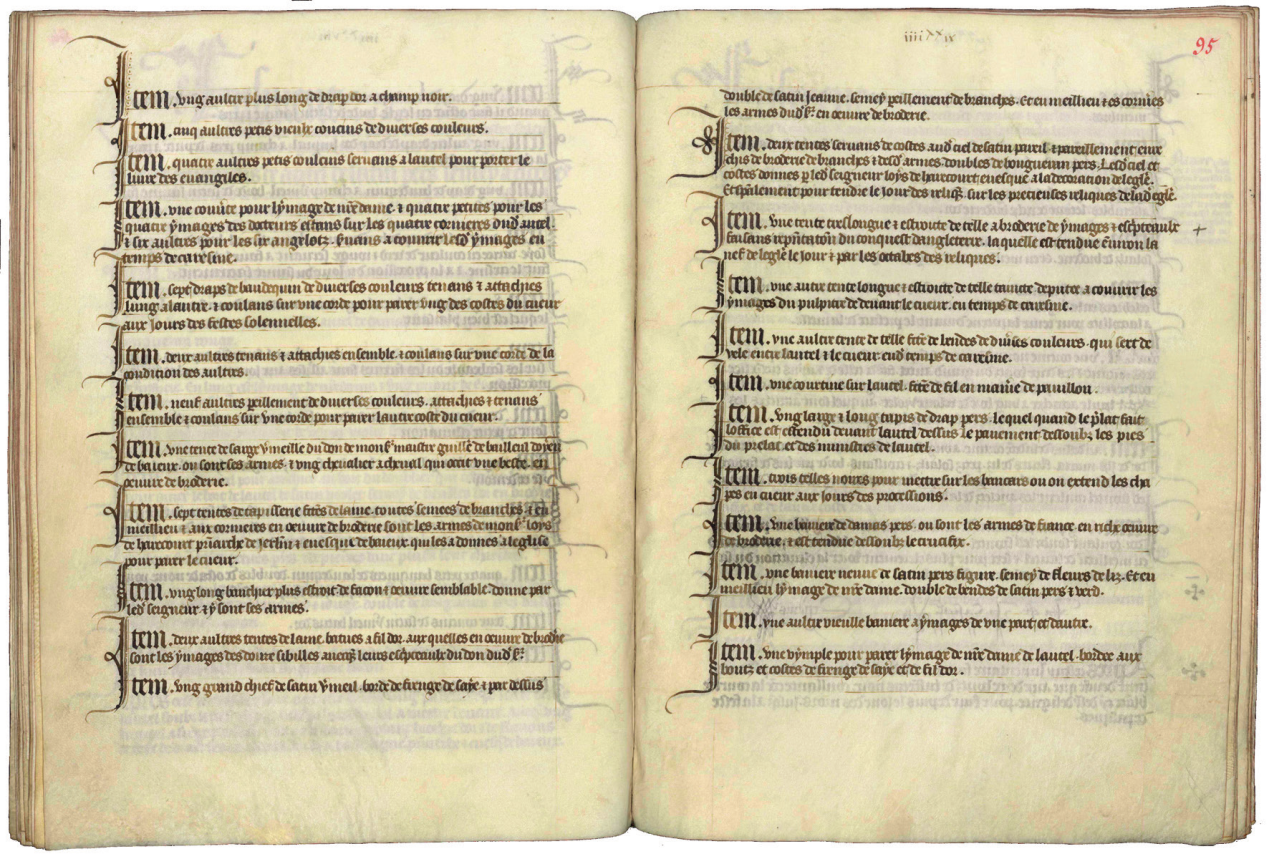 Item. vng aultre plus long de drap dor a champ noir.
Item. cinq aultres petis vieulx coucins de diuerses couleurs.
Item. quatre aultres petis couiens seruans a lautel pour porter le
liure des euangiles.
Item. vne couũte pour lymage de nr̃e dame. ⁊ quatre petites pour les
quatre ymages des docteurs estans sur les quatre cornieres dud autel.
⁊ six aultres pour les six angelotz. ẞuans a couurir lesd ymages en
temps de caresme.
Item. sept draps de baudequin de diuerses couleurs tenans ⁊ attachies
lung a lautre. ⁊ coulans sur vne corde pour parer vng des costes du cueur
aux iours des festes solennelles.
Item. deux aultres tenans ⁊ attachies ensemble. ⁊ coulans sur vne corde de la
condition des aultres.
Item. neuf aultres ꝑeillement de diuerses couleurs. attachies ⁊ tenans
ensemble ⁊ coulans sur vne corde pour parer lautre coste du cueur.
Item. vne tente de sarge v̾meille du don de mons̃ maistre guille de bailleul doyen
de baieux. ou sont ses armes. ⁊ vng cheualier a cheual qui occit vne beste. en
oeuure de broderie.
Item. sept tentes de tapisserie fc̃es de laine. toutes semees de branches. ⁊ en
meillieu ⁊ aux cornieres en oeuure de broderie sont les armes de mons̃ loys
de harecourt pr̃iarche de jerlm̃ ⁊ euesque de baieux. qui les a donnes a leglise
pour parer le cueur.
Item. vng long banchier plus estroit de facon ⁊ oeuure semblable. donne par
led seigneur ⁊ y sont ses armes.
Item. deux aultres tentes de laine. batues a fil dor. aux quelles en oeuure de brodie
sont les ymages des douze sibilles auecqz leurs escpteaulx du don dud s̃r.
Item. vng grand chief de satin v̾meil. borde de frenge de saye ⁊ par dessus
95
double de satin jeaune. semey ꝑeillement de branches. Et en meillieu ⁊ es cornies
les armes dud s̃r en oeuure de broderie.
Item. deux tentes seruans de costes aud ciel de satin pareil ⁊ pareillement enri
chis de broderie de branches ⁊ desd armes. doubles de bougueran pers. Lesd ciel et
costes donnes ꝑ led seigneur loys de harecourt euesque a la decoration de legle.
Et spãlement pour tendre le jour des reliq̃s. sur les precieuses reliques de lad egle.
Item. vne tente tres longue ⁊ estroicte de telle a broderie de ymages ⁊ escpteaulx +
faisans repñtation du conquest dangleterre. la quelle est tendue enuiron la
nef de legle le jour ⁊ par les octabes des reliques.
Item. vne autre tente longue ⁊ estroicte de telle taincte deputee a couurir les
ymages du pulpitre deuant le cueur. en temps de caresme.
Item. vne aultre tente de telle fc̃e de bendes de diũses couleurs. qui sert de
vele entre lautel ⁊ le cueur. end temps de caresme.
Item. vne courtine sur lautel. fc̃e de fil en maniẽ de pauillon.
Item. vng large ⁊ long tapis de drap pers. le quel quand le p̃lat fait
loffice est estendu deuant lautel dessus le pauement dessoubz les pies
du prelat et des ministres de lautel.
Item. trois telles noires pour mectre sur les bancars ou on extend les cha
pes en cueur aux jours des processions.
Item. vne baniere de damas pers. ou sont les armes de france. en riche oeuure
de broderie. ⁊ est tendue dessoubz le crucifix.
Item. vne baniere neuue de satin pers figure. semey de fleurs de liz. Et en
meillieu lymage de nr̃e dame. double de bendes de satin pers ⁊ verd.
Item. vne aultre vieille baniere a ymages de vne part et dautre.
Item. vne vymple pour parer lymage de nr̃e dame de lautel. bordee aux
boutz et costes de frenge de saye et de fil dor.